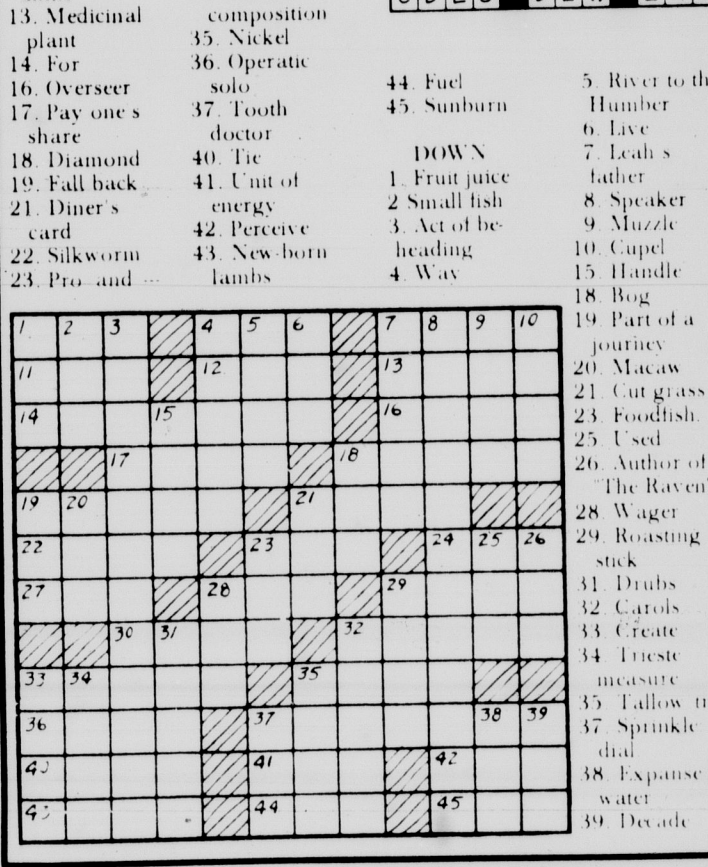 13. Medicinal
plant
14. For
16. Overseer
17. Pay one's
share
18. Diamond
19. Fall back
21. Diner's
card
22. Silkworm
23. Pro and ---
composition
35. Nickel
36. Operatic
solo
37. Tooth
doctor
40. Tie
41. Unit of
energy
42. Perceive
43. New-born
lambs
44. Fuel
45. Sunburn
DOWN
1. Fruit juice
2 Small fish
3. Act of be-
heading
4. Way
5. River to th
Humber
6. Live
7. Leah s
father
8. Speaker
9. Muzzle
10. Cupel
15. Handle
18. Bog
19. Part of a
journey
20. Macaw
21. Cut grass
23. Foodfish.
25. Used
26. Author of
"The Raven"
28. Wager
29. Roasting
stick
31. Drubs
32. Carols
33. Create
34. Trieste
measure
35 Tallow tr
37. Sprinkle
dial
38. Expanse
water
39. Decade
1 2 3 4 5 6 7 8 9 10
11 12 13
14 15 16
17 18
19 20 21
22 23 24 25 26
27 28 29
30 31 32
33 34 35
36 37 38 39
40 41 42
43 44 45